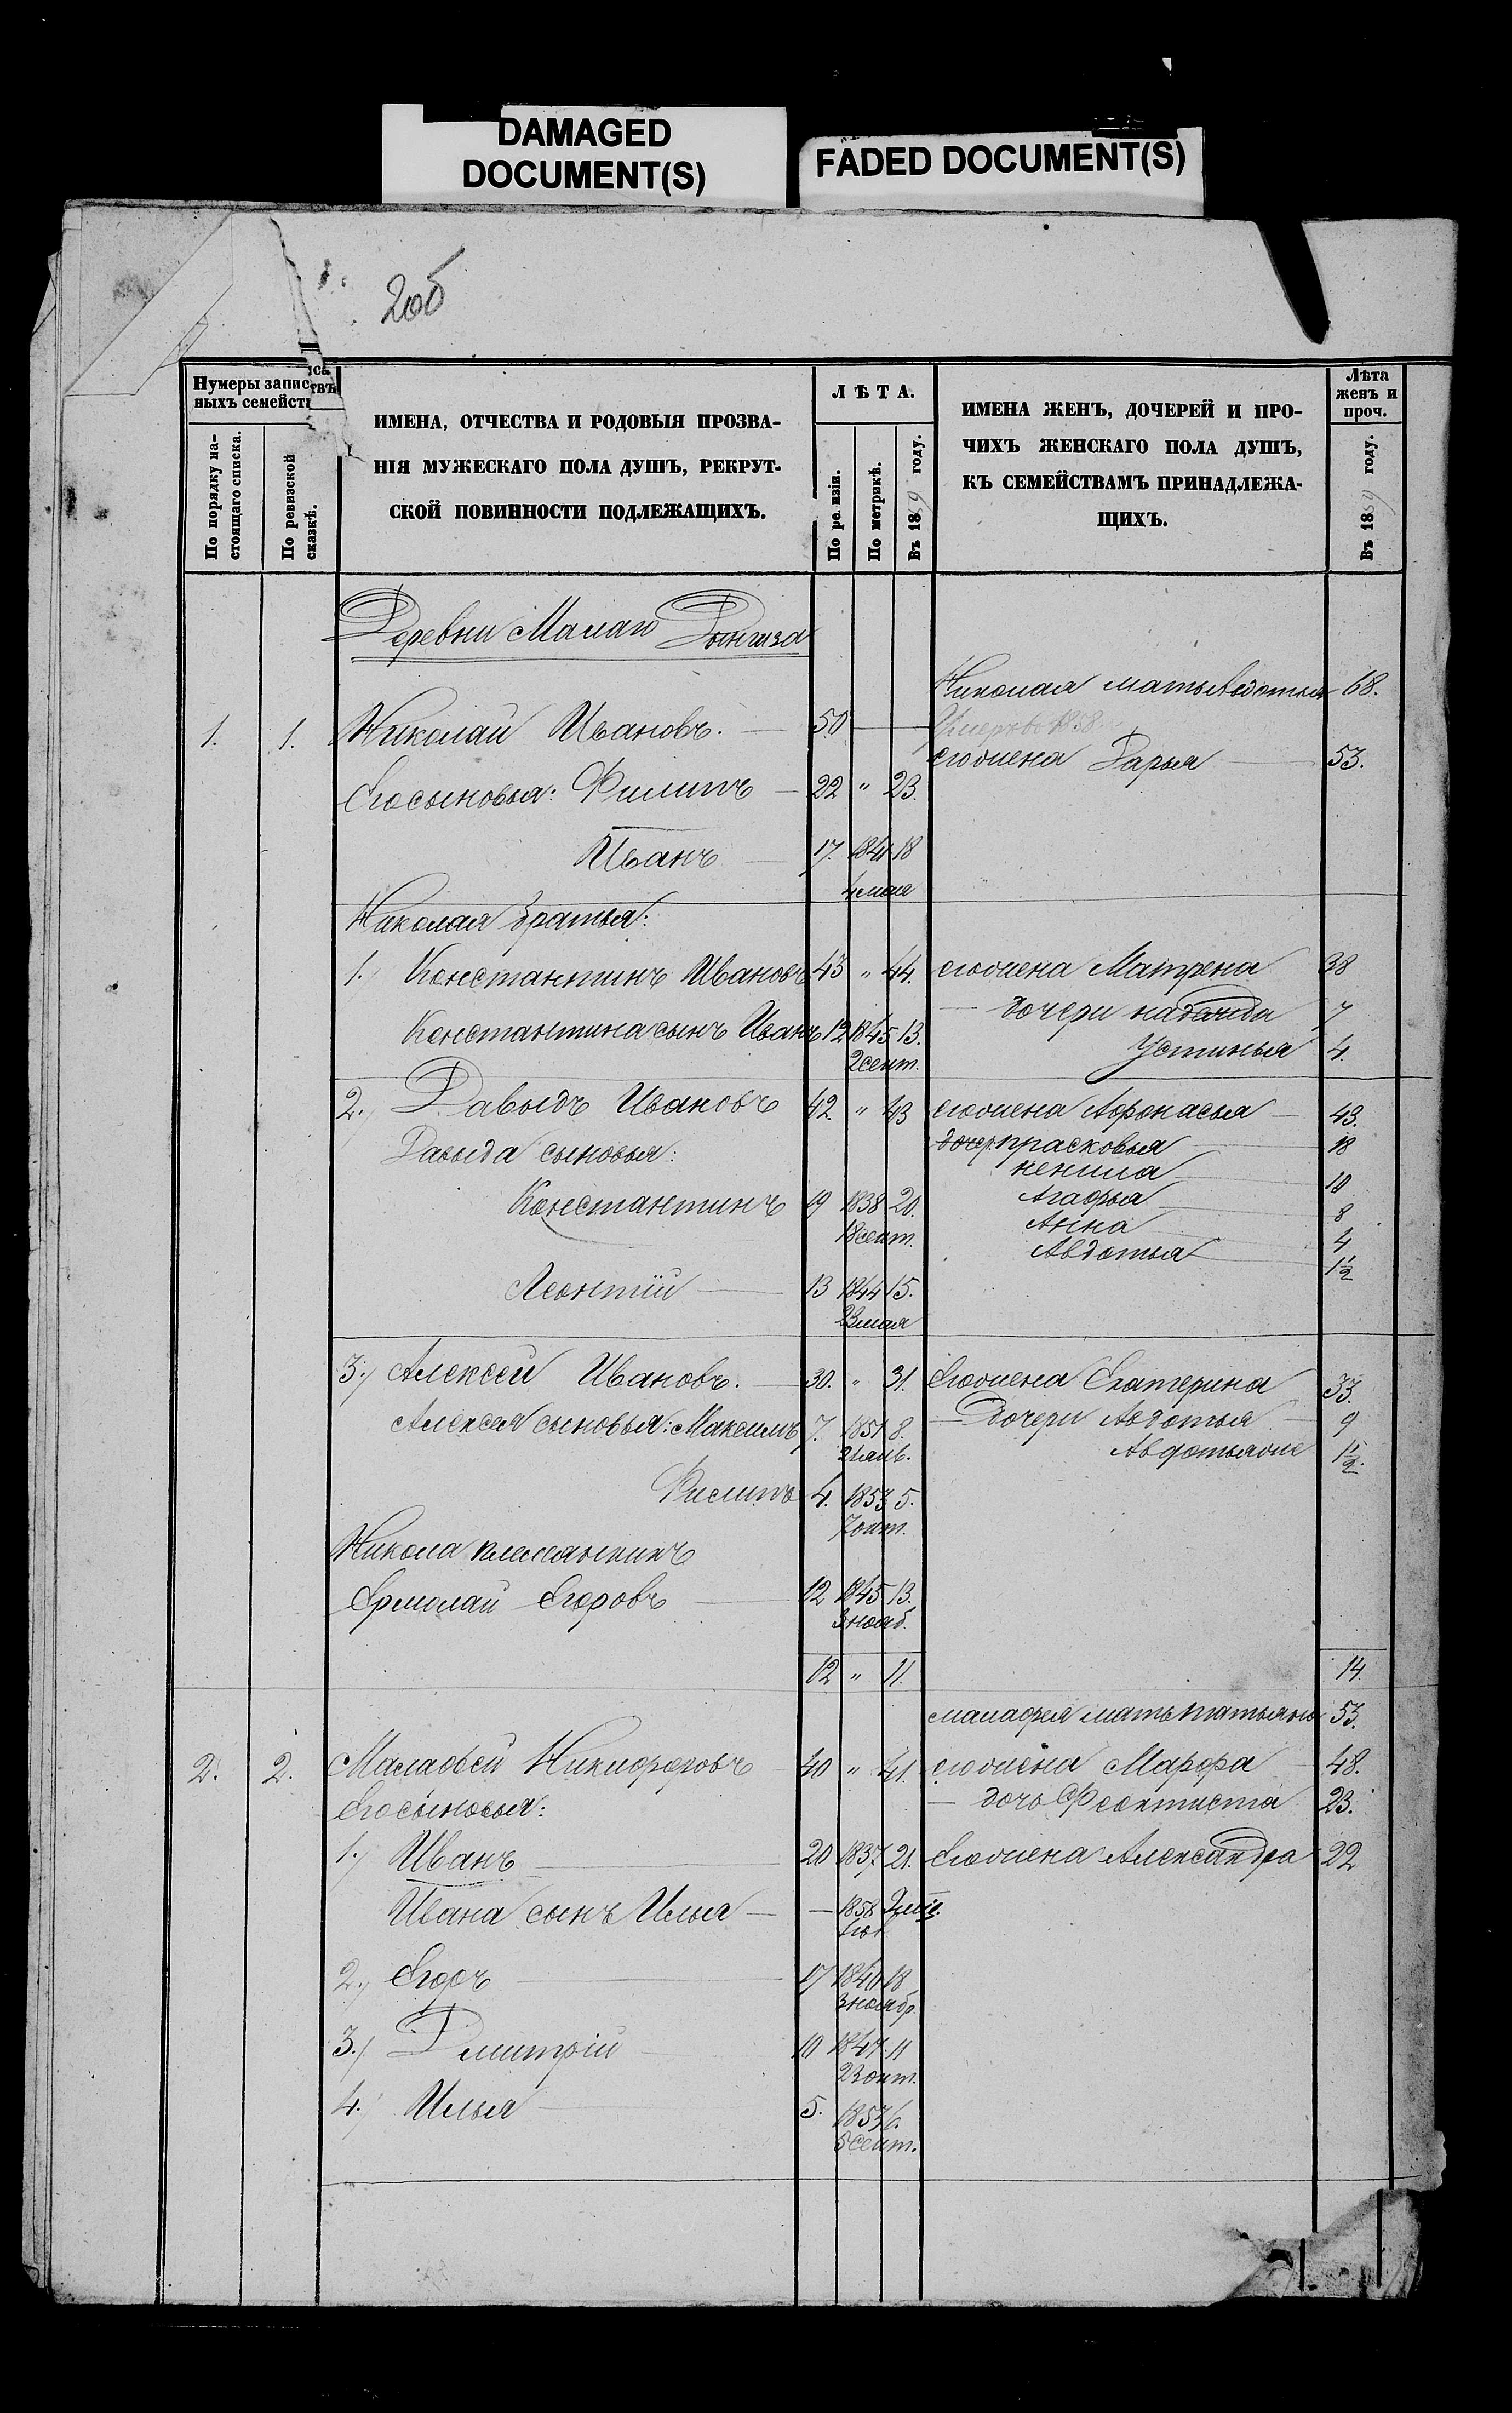 DAMAGED
DOCUMENT(S)
FADED DOCUMENT(S)
206
Нумеры запис
ныхъ семейст
По порядку на-
стоящаго списка.
По ревизской
сказкѣ.
ИМЕНА, ОТЧЕСТВА И РОДОВЫЯ ПРОЗВА-
НІЯ МУЖЕСКАГО ПОЛА ДУШЪ, РЕКРУТ-
СКОЙ ПОВИННОСТИ ПОДЛЕЖАЩИХЪ.
ЛѢТА.
По ре изіи.
По метрикѣ.
Въ 1859 году.
ИМЕНА ЖЕНЪ, ДОЧЕРЕЙ И ПРО-
ЧИХЪ ЖЕНСКАГО ПОЛА ДУШЪ,
КЪ СЕМЕЙСТВАМЪ ПРИНАДЛЕЖА-
ЩИХЪ.
Лѣта
женъ и
проч.
Въ 1859 году.
Деревни Малаго
Николая мать Авдотья 68.
1. 1. Николай Ивановъ. — 50 —
его жена Дарья — 53.
Его сыновья: Филипъ — 22 " 23.
Иванъ — 17. 1841 18
4 мая
Николая братья:
1.) Константинъ Ивановъ 43 " 44. его жена Матрена 38
— дочери надежда 7
Константина сынъ Иванъ 12 1845 13.
2 сент.
Устинья 4.
2.) Давыдъ Ивановъ 42 " 43 его жена Афонасья — 43.
Давыда сыновья:
дочер. прасковья — 18
ненила — 10
Константинъ 19 1838 20.
18 сент.
Агафья — 8
Анна — 4
Авдотья — 1½
Леонтій — 13 1844 15.
23 мая
3.) Алексей Ивановъ. — 30. " 31. Его жена Екатерина 33.
Алексея сыновья: Максимъ 7. 1851 8.
21 янв.
— Дочери Авдотья — 9
Авдотья же 1½.
Филипъ 4. 1853 5.
7 окт.
Никола племянникъ
Ермолай Егоровъ — 12 1845 13.
3 нояб.
12 " 11. 14.
малафея мать татьяна 53.
2. 2. Малафей Никифоровъ 40 " 41. его жена Марфа — 48.
Его сыновья:
— дочь Феоктиста 23.
1.) Иванъ — 20 1837. 21. Его жена Александра 22
Ивана сынъ Илья — — 1858
2.) Егоръ — 17 1840 18
3 ноябр.
3.) Дмитрій — 10 1847 11
23 окт.
4.) Илья — 5. 1853 6.
5 сент.